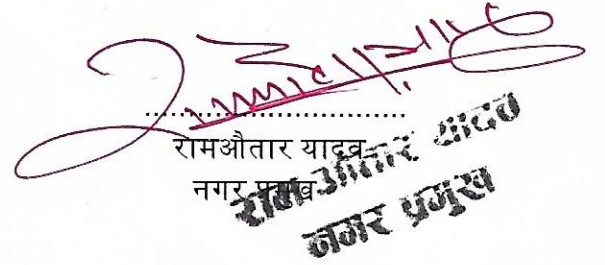 ..............................
रामऔतार यादव
नगर प्रमुख
राम औतार यादव
नगर प्रमुख